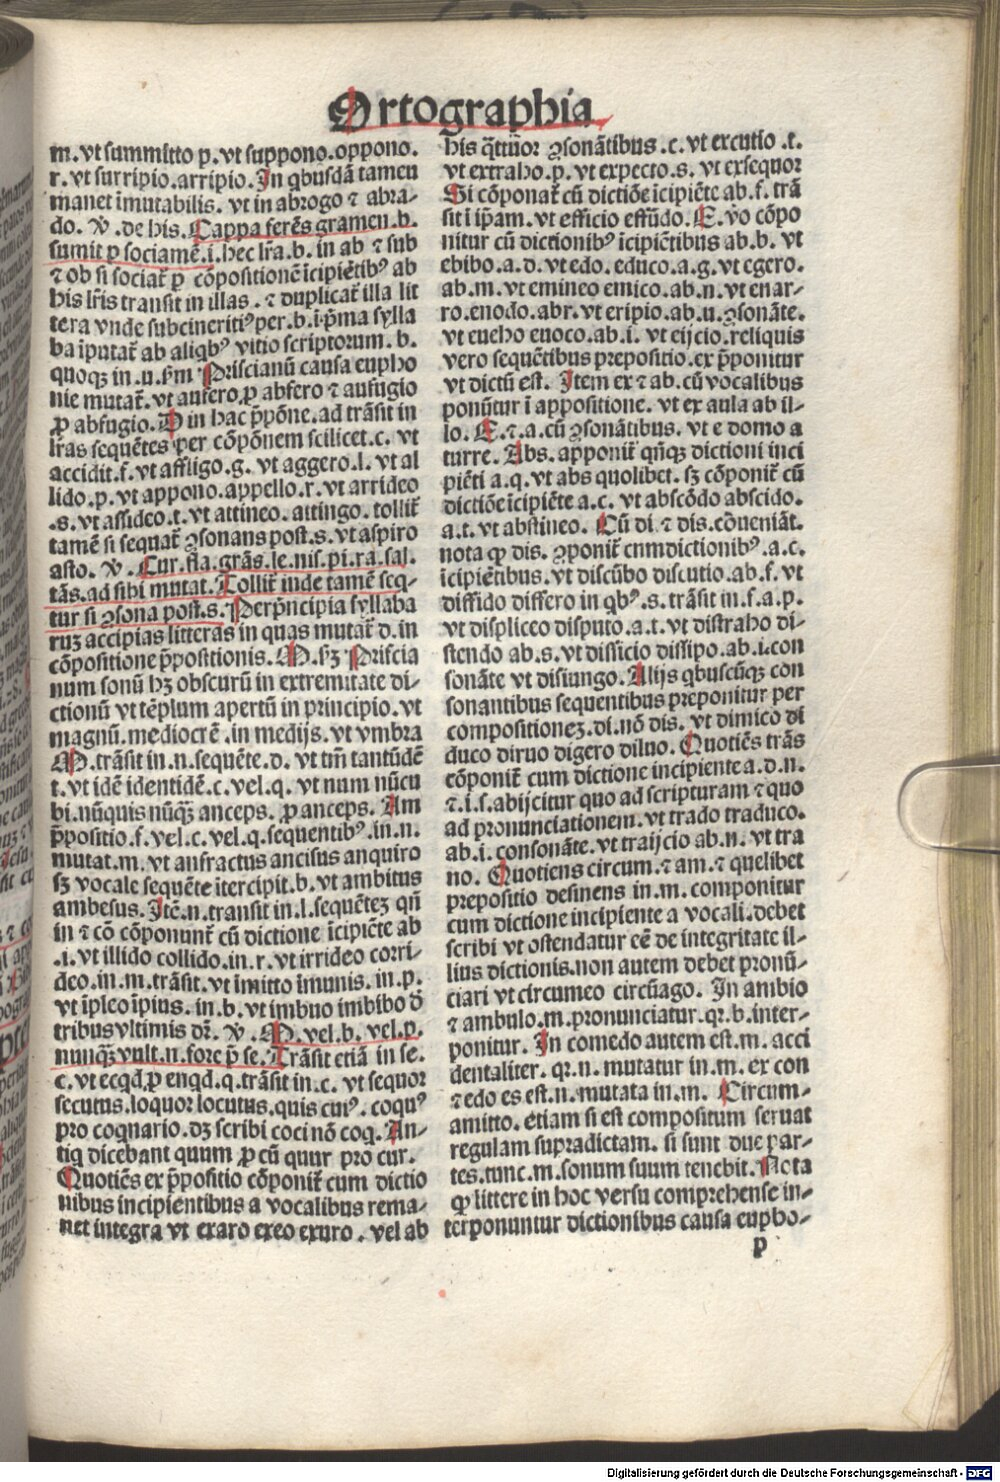 Ortographia
m. vt summitto p. vt suppono. oppono.
r. vt surripio. arripio. In qbusdā tameu
manet imutabilis. vt in abrogo ⁊ abra-
do. V̕. de his. Cappa ferēs gramen. b.
sumit ꝑ sociamē. i. hec lr̄a. b. in ab ⁊ sub
⁊ ob si sociat᷑ ꝑ cōpositionē īcipiētibꝰ ab
his lr̄is transit in illas. ⁊ duplicat᷑ illa lit
tera vnde subcineritiꝰ per. b. i pͥma sylla
ba iputat᷑ ab aliqbꝰ vitio scriptorum. b.
quoqꝫ in. u. ẜm Priscianū causa eupho
nie mutat᷑. vt aufero ꝓ abfero ⁊ aufugio
ꝓ abfugio. D in hac p̄pōne. ad trāsit in
lr̄as sequētes per cōpōnem scilicet. c. vt
accidit. f. vt affligo. g. vt aggero. l. vt al
lido. p. vt appono. appello. r. vt arrideo
.s. vt assideo. t. vt attineo. attingo. tollit᷑
tamē si sequat᷑ ꝯsonans post. s. vt aspiro
asto. V̕. Cur. fla. grās. le. nis. pi. ra. sal.
tās. ad sibi mutat. Tollit᷑ inde tamē seq-
tur si ꝯsona post. s. Per pͥncipia syllaba
ruꝫ accipias litteras in quas mutat᷑ d. in
cōpositione p̄positionis. M. ẜꝫ Priscia
num sonū hꝫ obscurū in extremitate di-
ctionū vt tēplum apertū in principio. vt
magnū. mediocrē. in medijs. vt vmbra
M. trāsit in. n. sequēte. d. vt tm̄ tantūdē
t. vt idē identidē. c. vel. q. vt num nūcu
bi. nūquis nūqꝫ anceps. ꝓ anceps. Am
p̄positio. f. vel. c. vel. q. sequentibꝰ. in. n.
mutat. m. vt anfractus ancisus anquiro
ẜꝫ vocale sequēte itercipit. b. vt ambitus
ambesus. Itē. n. transit in. l. sequēteꝫ qn̄
in ⁊ cō cōponunt᷑ cū dictione īcipiēte ab
.i. vt illido collido. in. r. vt irrideo corri-
deo. in. m. trāsit. vt imitto imunis. in. p.
vt īpleo īpius. in. b. vt imbuo imbibo ď
tribus vltimis dr̄. V̕. M. vel. b. vel. p.
nunqꝫ vult. n. fore p̄ se. Trāsit etiā in se.
c. vt ecqd ꝓ enqd. q. trāsit in. c. vt sequor
secutus. loquor locutus. quis cuiꝰ. coquꝰ
pro coqnario. dꝫ scribi coci nō coq. An-
tiq dicebant quum ꝓ cū quur pro cur.
Quotiēs ex p̄positio cōponit᷑ cum dictio
nibus incipientibus a vocalibus rema-
net integra vt exaro exeo exuro. vel ab
his q̄ttuor ꝯsonātibus. c. vt excutio. t.
vt extraho. p. vt expecto. s. vt exsequor
Si cōponat᷑ cū dictiōe īcipiēte ab. f. trā
sit ī ip̄am. vt efficio effūdo. E. v̊o cōpo
nitur cū dictionibꝰ īcipiētibus ab. b. vt
ebibo. a. d. vt edo. educo. a. g. vt egero.
ab. m. vt emineo emico. ab. n. vt enar-
ro. enodo. ab r. vt eripio. ab. u. ꝯsonāte.
vt eueho euoco. ab. i. vt eijcio. reliquis
vero sequētibus prepositio. ex p̄ponitur
vt dictū est. Item ex ⁊ ab. cū vocalibus
ponūtur ī appositione. vt ex aula ab il-
lo. E. ⁊. a. cū ꝯsonātibus. vt e domo a
turre. Abs. apponit᷑ qn̄qꝫ dictioni inci
piēti a. q. vt abs quolibet. ẜꝫ cōponit᷑ cū
dictiōe īcipiēte a. c. vt abscōdo abscido.
a. t. vt abstineo. Cū di. ⁊ dis. cōueniāt.
nota ꝙ dis. ꝯponit᷑ cnm dictionibꝰ. a. c.
īcipiētibus. vt discūbo discutio. ab. f. vt
diffido differo in qbꝰ. s. trāsit in. f. a. p.
vt displiceo disputo. a. t. vt distraho di-
stendo ab. s. vt dissicio dissipo. ab. i. con
sonāte vt disiungo. Alijs qbuscūqꝫ con
sonantibus sequentibus preponitur per
compositioneꝫ. di. nō dis. vt dimico di
duco diruo digero diluo. Quotiēs trās
cōponit᷑ cum dictione incipiente a. d. n.
⁊. i. s. abijcitur quo ad scripturam ⁊ quo
ad pronunciationem. vt trado traduco.
ab. i. consonāte. vt traijcio ab. n. vt tra
no. Quotiens circum. ⁊ am. ⁊ quelibet
prepositio desinens in. m. componitur
cum dictione incipiente a vocali. debet
scribi vt ostendatur eē de integritate il-
lius dictionis. non autem debet pronū-
ciari vt circumeo circūago. In ambio
⁊ ambulo. m. pronunciatur. qr. b. inter-
ponitur. In comedo autem est. m. acci
dentaliter. qr. n. mutatur in. m. ex con
⁊ edo es est. n. mutata in. m. Circum-
amitto. etiam si est compositum seruat
regulam supradictam. si sunt due par-
tes. tunc. m. sonum suum tenebit. Nota
ꝙ littere in hoc versu comprehense in-
terponuntur dictionibus causa eupho-
p
Digitalisierung gefördert durch die Deutsche Forschungsgemeinschaft - DFG